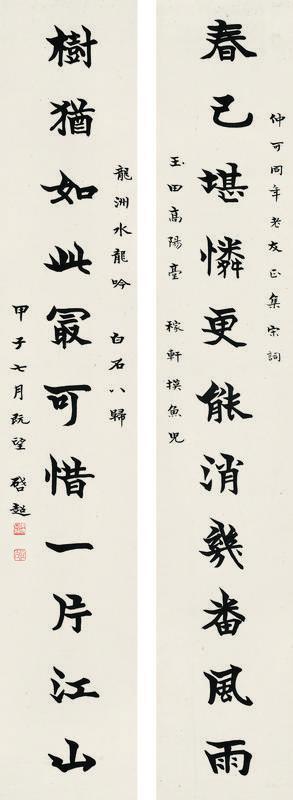 仲可同年老友正集宋詞
春已堪憐更能消幾番風雨
玉田高陽臺 稼軒摸魚兒
龍洲水龍吟 白石八歸
樹猶如此冣可惜一片江山
甲子七月既望 啓超